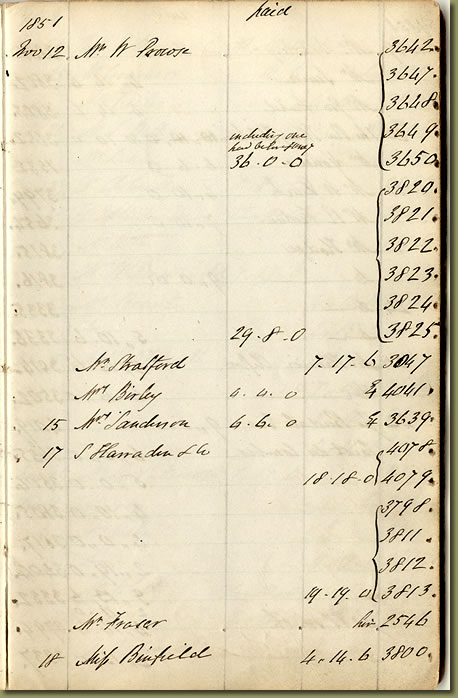 1851 Paid
Nov 12 Mr W Prowse 3642
3647
3648
including one
3649
36.0.0 3650
3820
3821
3822
3823
3824
29.8.0 3825
Mr Stratford 7.17.6 3047
Mrs Birley 4.4.0 4041
15 Mrs Sanderson 6.6.0 3639
17 S Harraden & Co 4078
18.18.0 4079
3798
3811
3812
19.19.0 3813
Mr Fraser hire 2546
18 Miss Binfield 4.14.6 3800